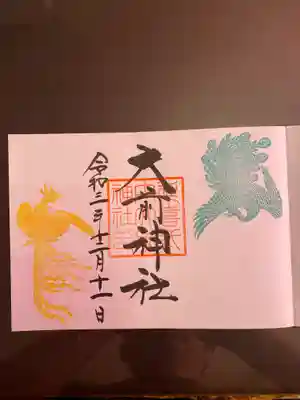 大前神社
令和三年十二月十一日